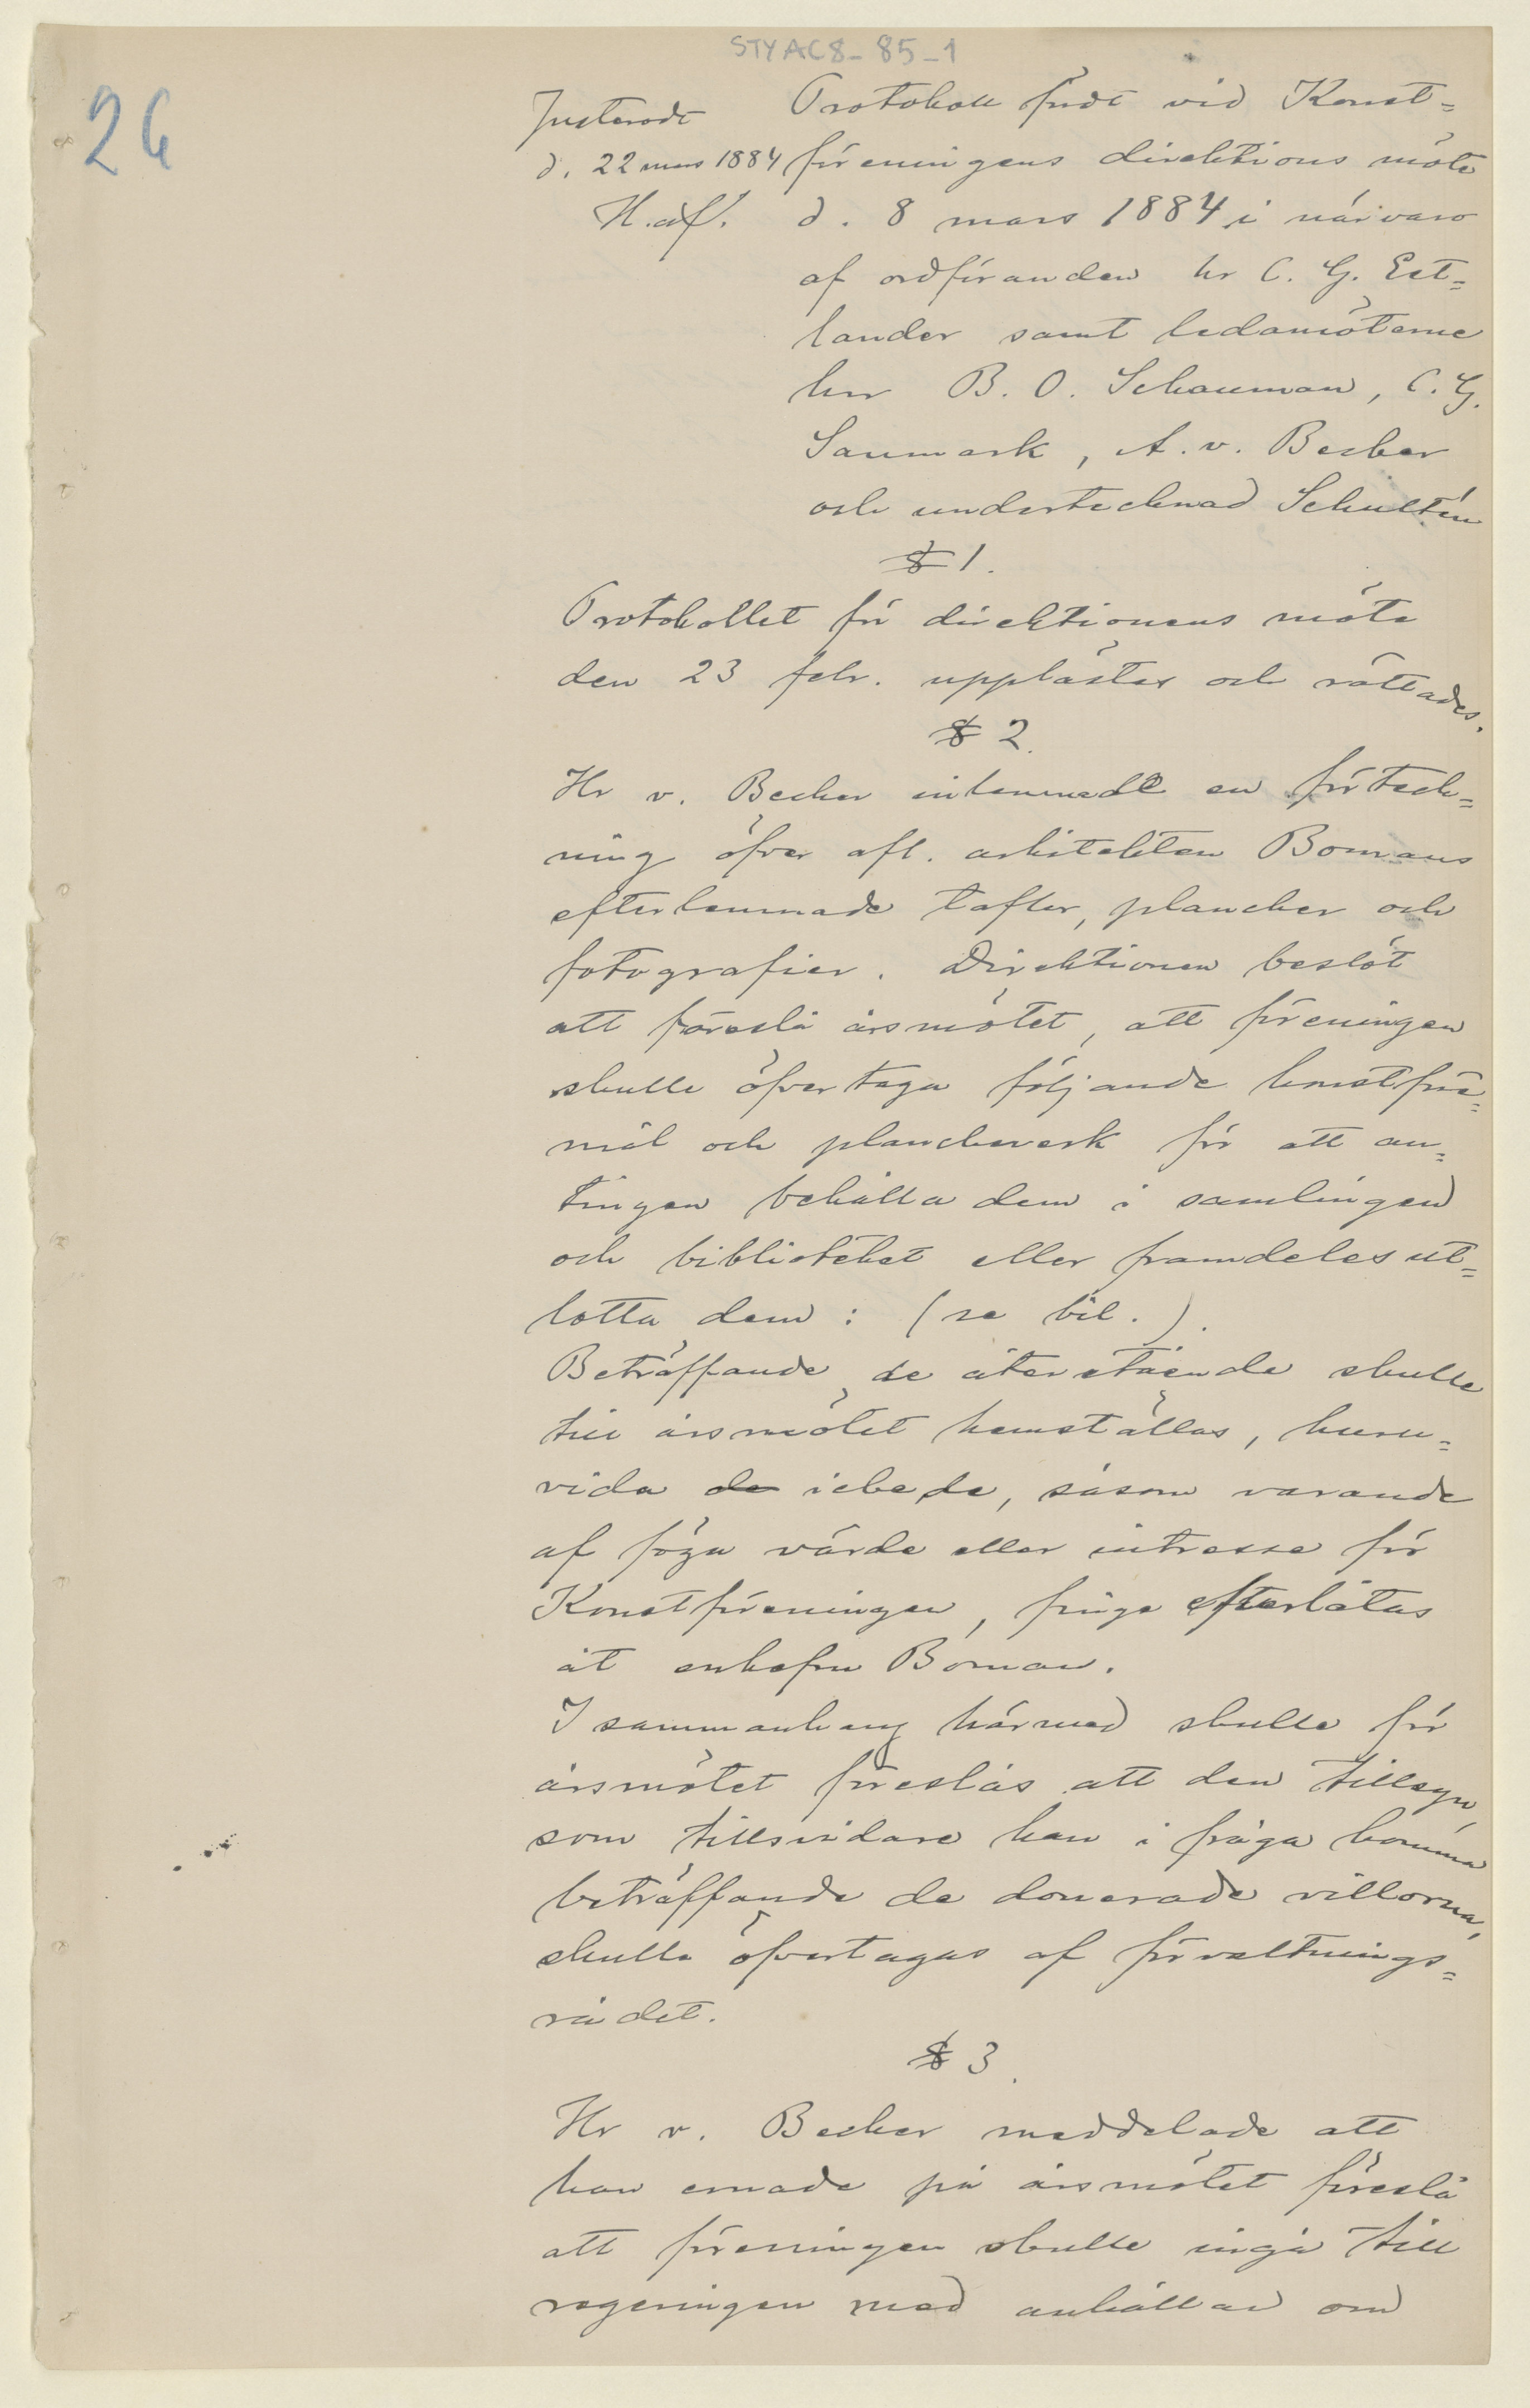 STYAC8-85-1
26
Justeradt
d. 22 mars 1884
H. af S.
Protokoll fördt vid Konst=
föreningens direktions möte
d. 8 mars 1884 i närvaro
af ordföranden hr C. G. Est=
lander samt ledamöterne
hrr B. O. Schauman, C. G.
Sanmark, A. v. Becker
och undertecknad Schultén
§ 1.
Protokollet för direktionens möte
den 23 febr. upplästes och rättades.
§ 2.
Hr v. Becker inlemnade en förteck=
ning öfver afl. arkitekten Bomans
efterlemnade taflor, plancher och
fotografier. Direktionen beslöt
att föreslå årsmötet, att föreningen
skulle öfvertaga följande konstföre=
mål och plancheverk för att an=
tingen behålla dem i samlingen
och biblioteket eller framdeles ut=
lotta dem: (se bil. ).
Beträffande de återstående skulle
till årsmötet hemställas, huru=
vida de icke de, såsom varande
af föga värde eller intresse för
Konstföreningen, finge efterlåtas
åt enkefru Boman.
I sammanhang härmed skulle för
årsmötet föreslås att den tillsyn
som tillsvidare kan i fråga komma
beträffande de donerade villorna,
skulle öfvertagas af förvaltnings=
rådet.
§ 3.
Hr v. Becker meddelade att
han ernade på årsmötet föreslå
att föreningen skulle ingå till
regeringen med anhållan om